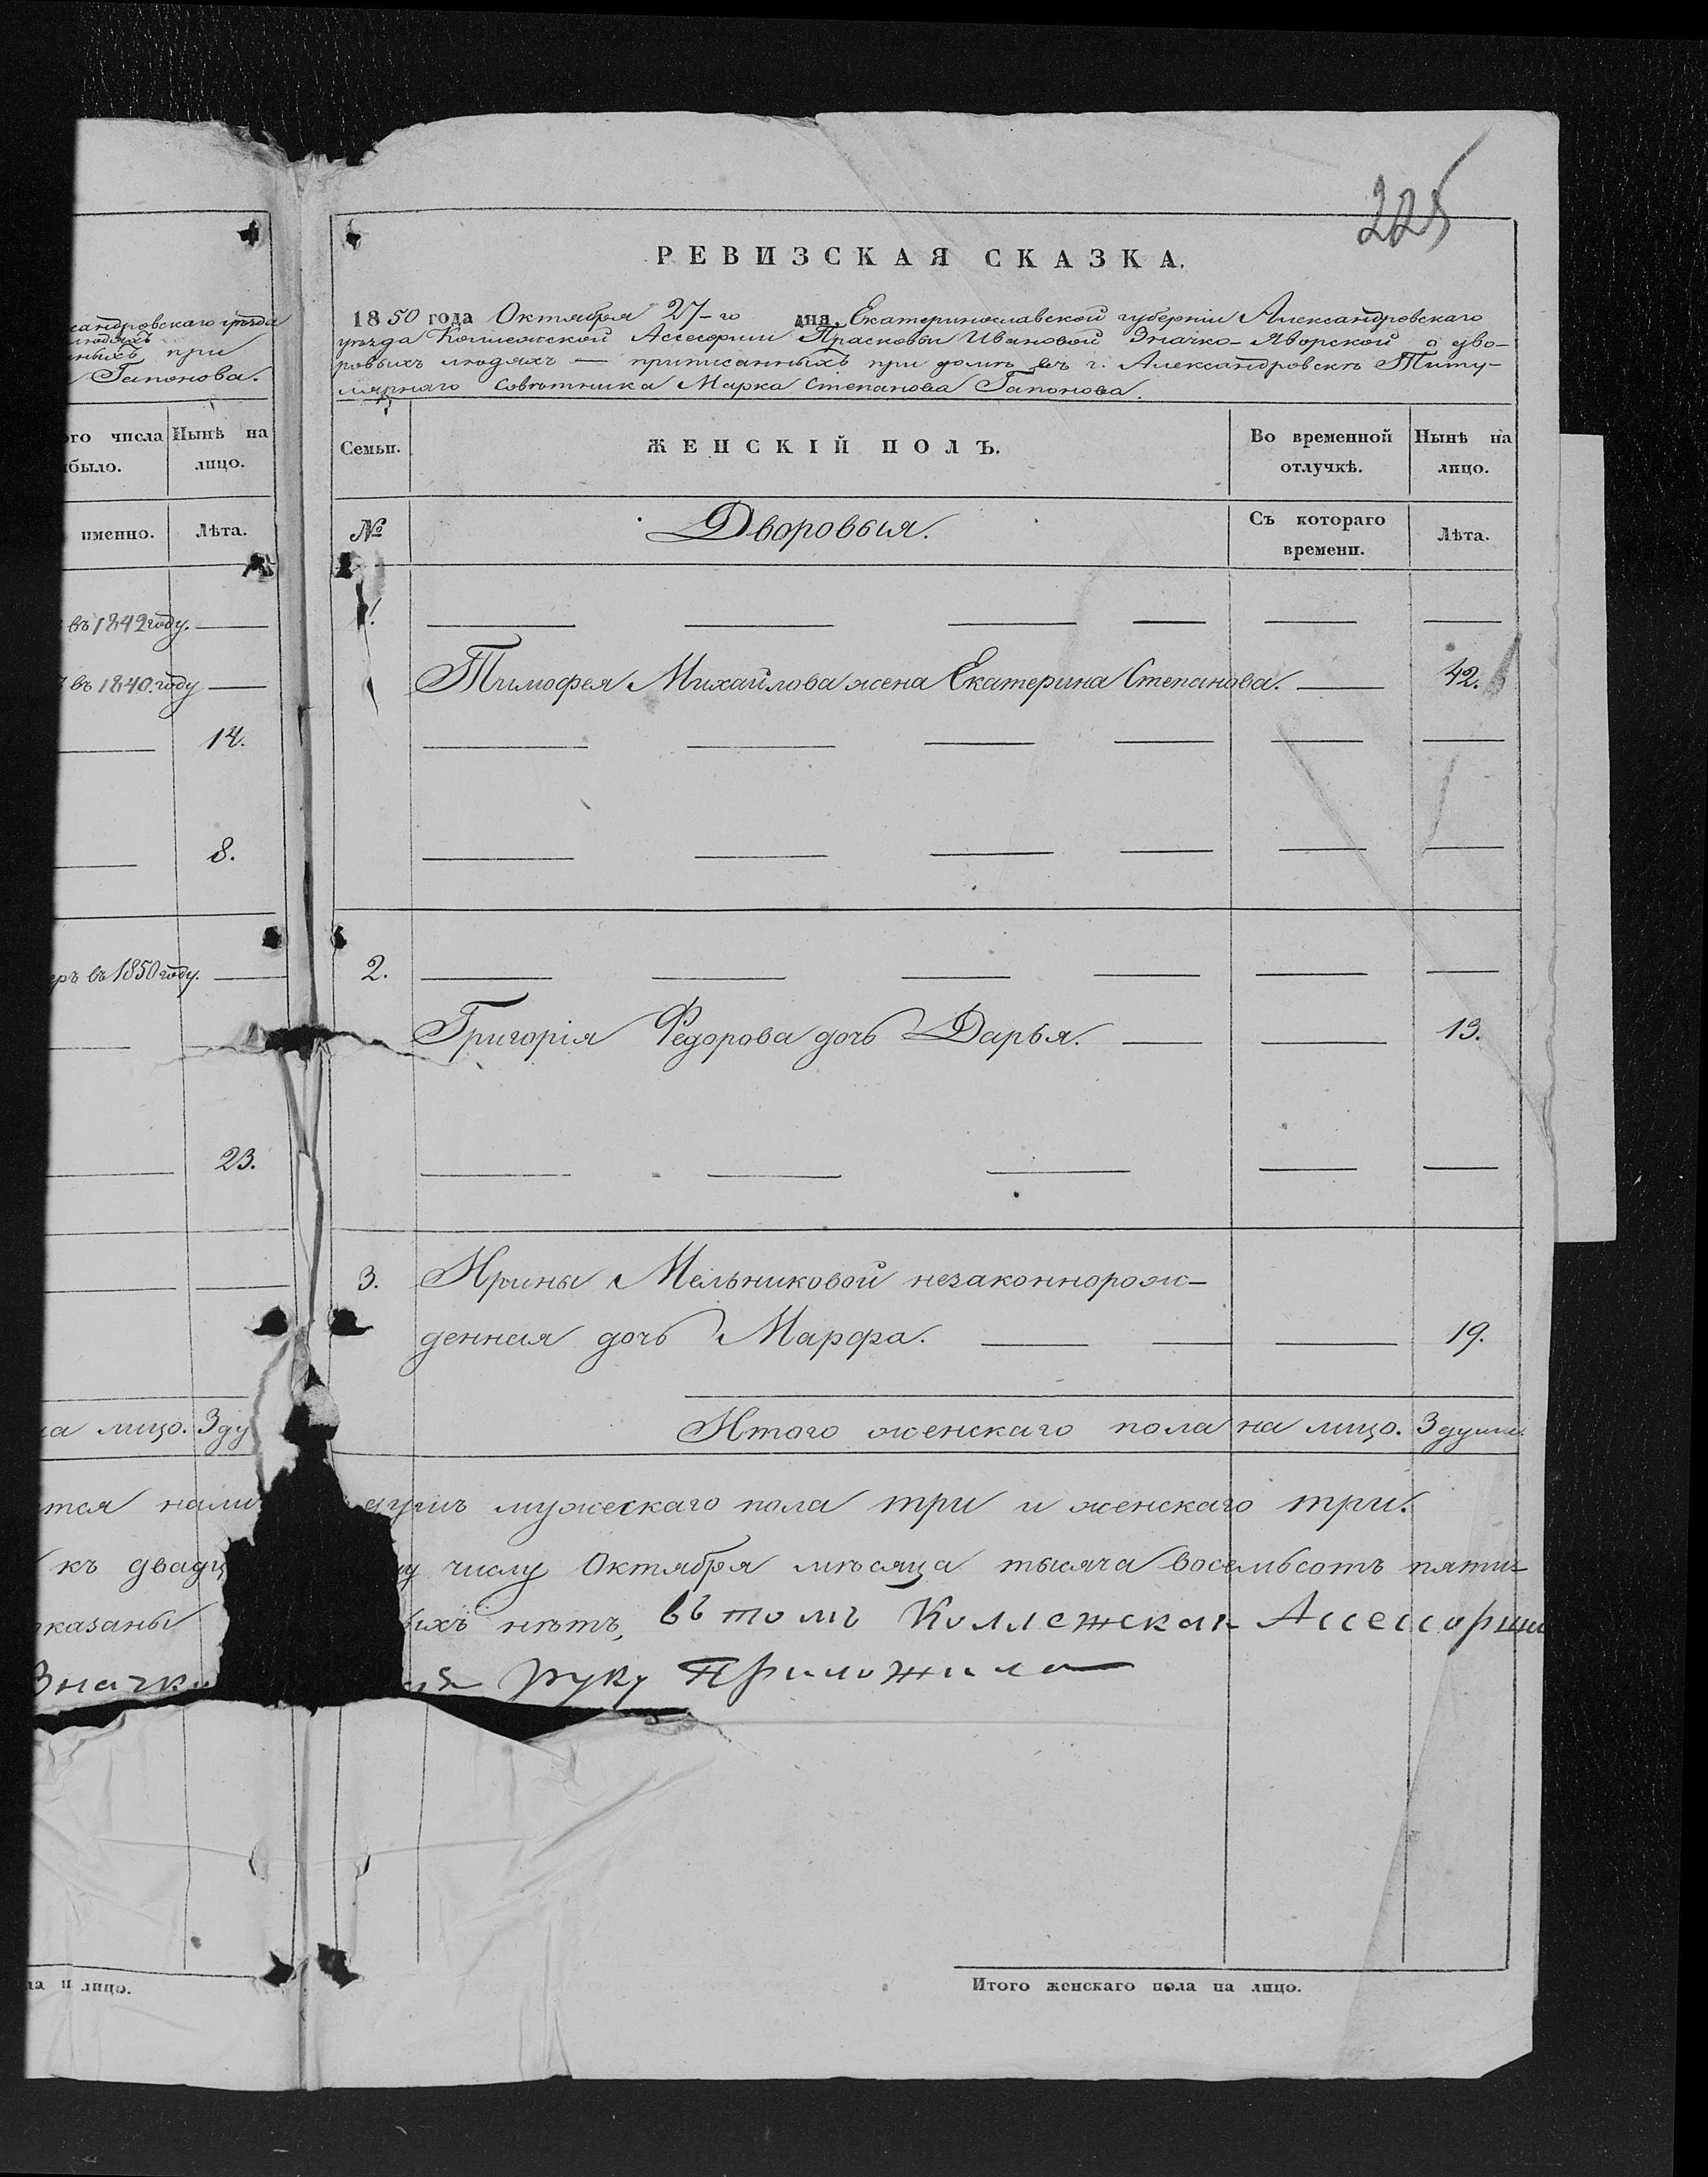 225
сандровскаго уѣзда
людяхъ
ныхъ при
Гапонова.
ого числа
было.
Нынѣ на
лицо.
именно.
Лѣта.
въ 1842 году.
въ 1840. году
14.
8.
еръ въ 1850 году.
23.
на лицо. 3 ду
РЕВИЗСКАЯ СКАЗКА.
1850 года Октября 27-го дня, Екатеринославской губерніи Александровскаго
уѣзда Коллежской Ассесорши Прасковьи Ивановой Значко-Яворской о дво-
ровыхъ людяхъ — приписанныхъ при домѣ въ г. Александровскѣ Титу-
лярнаго Совѣтника Марка Степанова Гапонова.
Семьи.
ЖЕНСКІЙ ПОЛЪ.
Во временной
отлучкѣ.
Нынѣ на
лицо.
№
Дворовыя.
Съ котораго
времени.
Лѣта.
1.
Тимофея Михайлова жена Екатерина Степанова. — 42.
2.
Григорія Федорова дочь Дарья. — — 13.
3. Ирины Мельниковой незаконнорож-
денная дочь Марфа. — — — 19.
Итого женскаго пола на лицо. 3 души.
ется нали душъ мужескаго пола три и женскаго три.
къ двадц му числу Октября мѣсяца тысяча восемьсотъ пяти-
оказаны ыхъ нѣтъ, въ томъ Коллежская Ассесорши
Значко ая руку приложила
ла и лицо.
Итого женскаго пола на лицо.